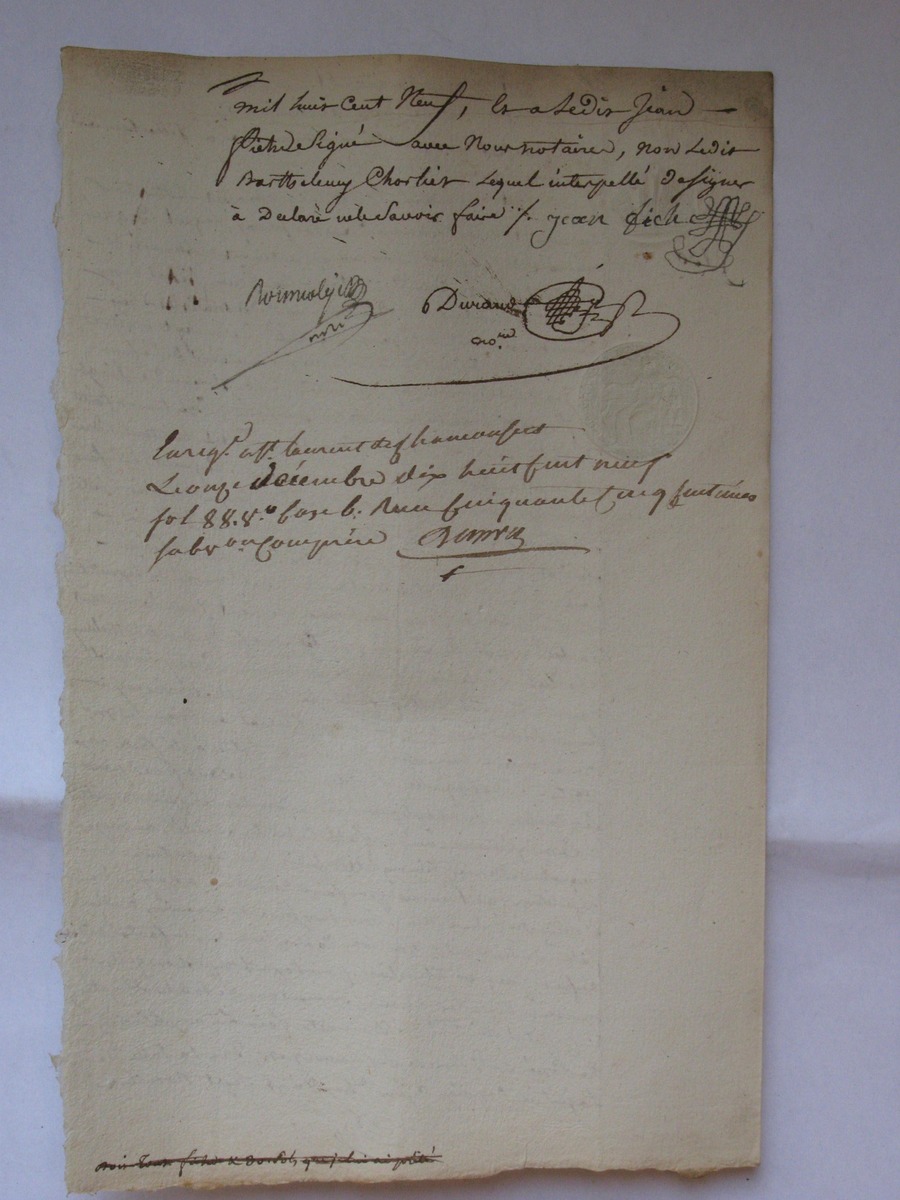 mil huit cent Neuf, Et a Ledit Jean
Fiche Signé avec Nous notaires, non Ledit
Barthelemy Chorlier Lequel interpellé de Signer
à Declaré ne le Savoir faire /. jean fich
Durand
no.re
Enreg.t a St. laurent de Chamousset
Le onze décembre dix huit Cent neuf
fol 88. v.o Case 6. Recu Cinquante Cinq Centimes
Subv.on Comprise